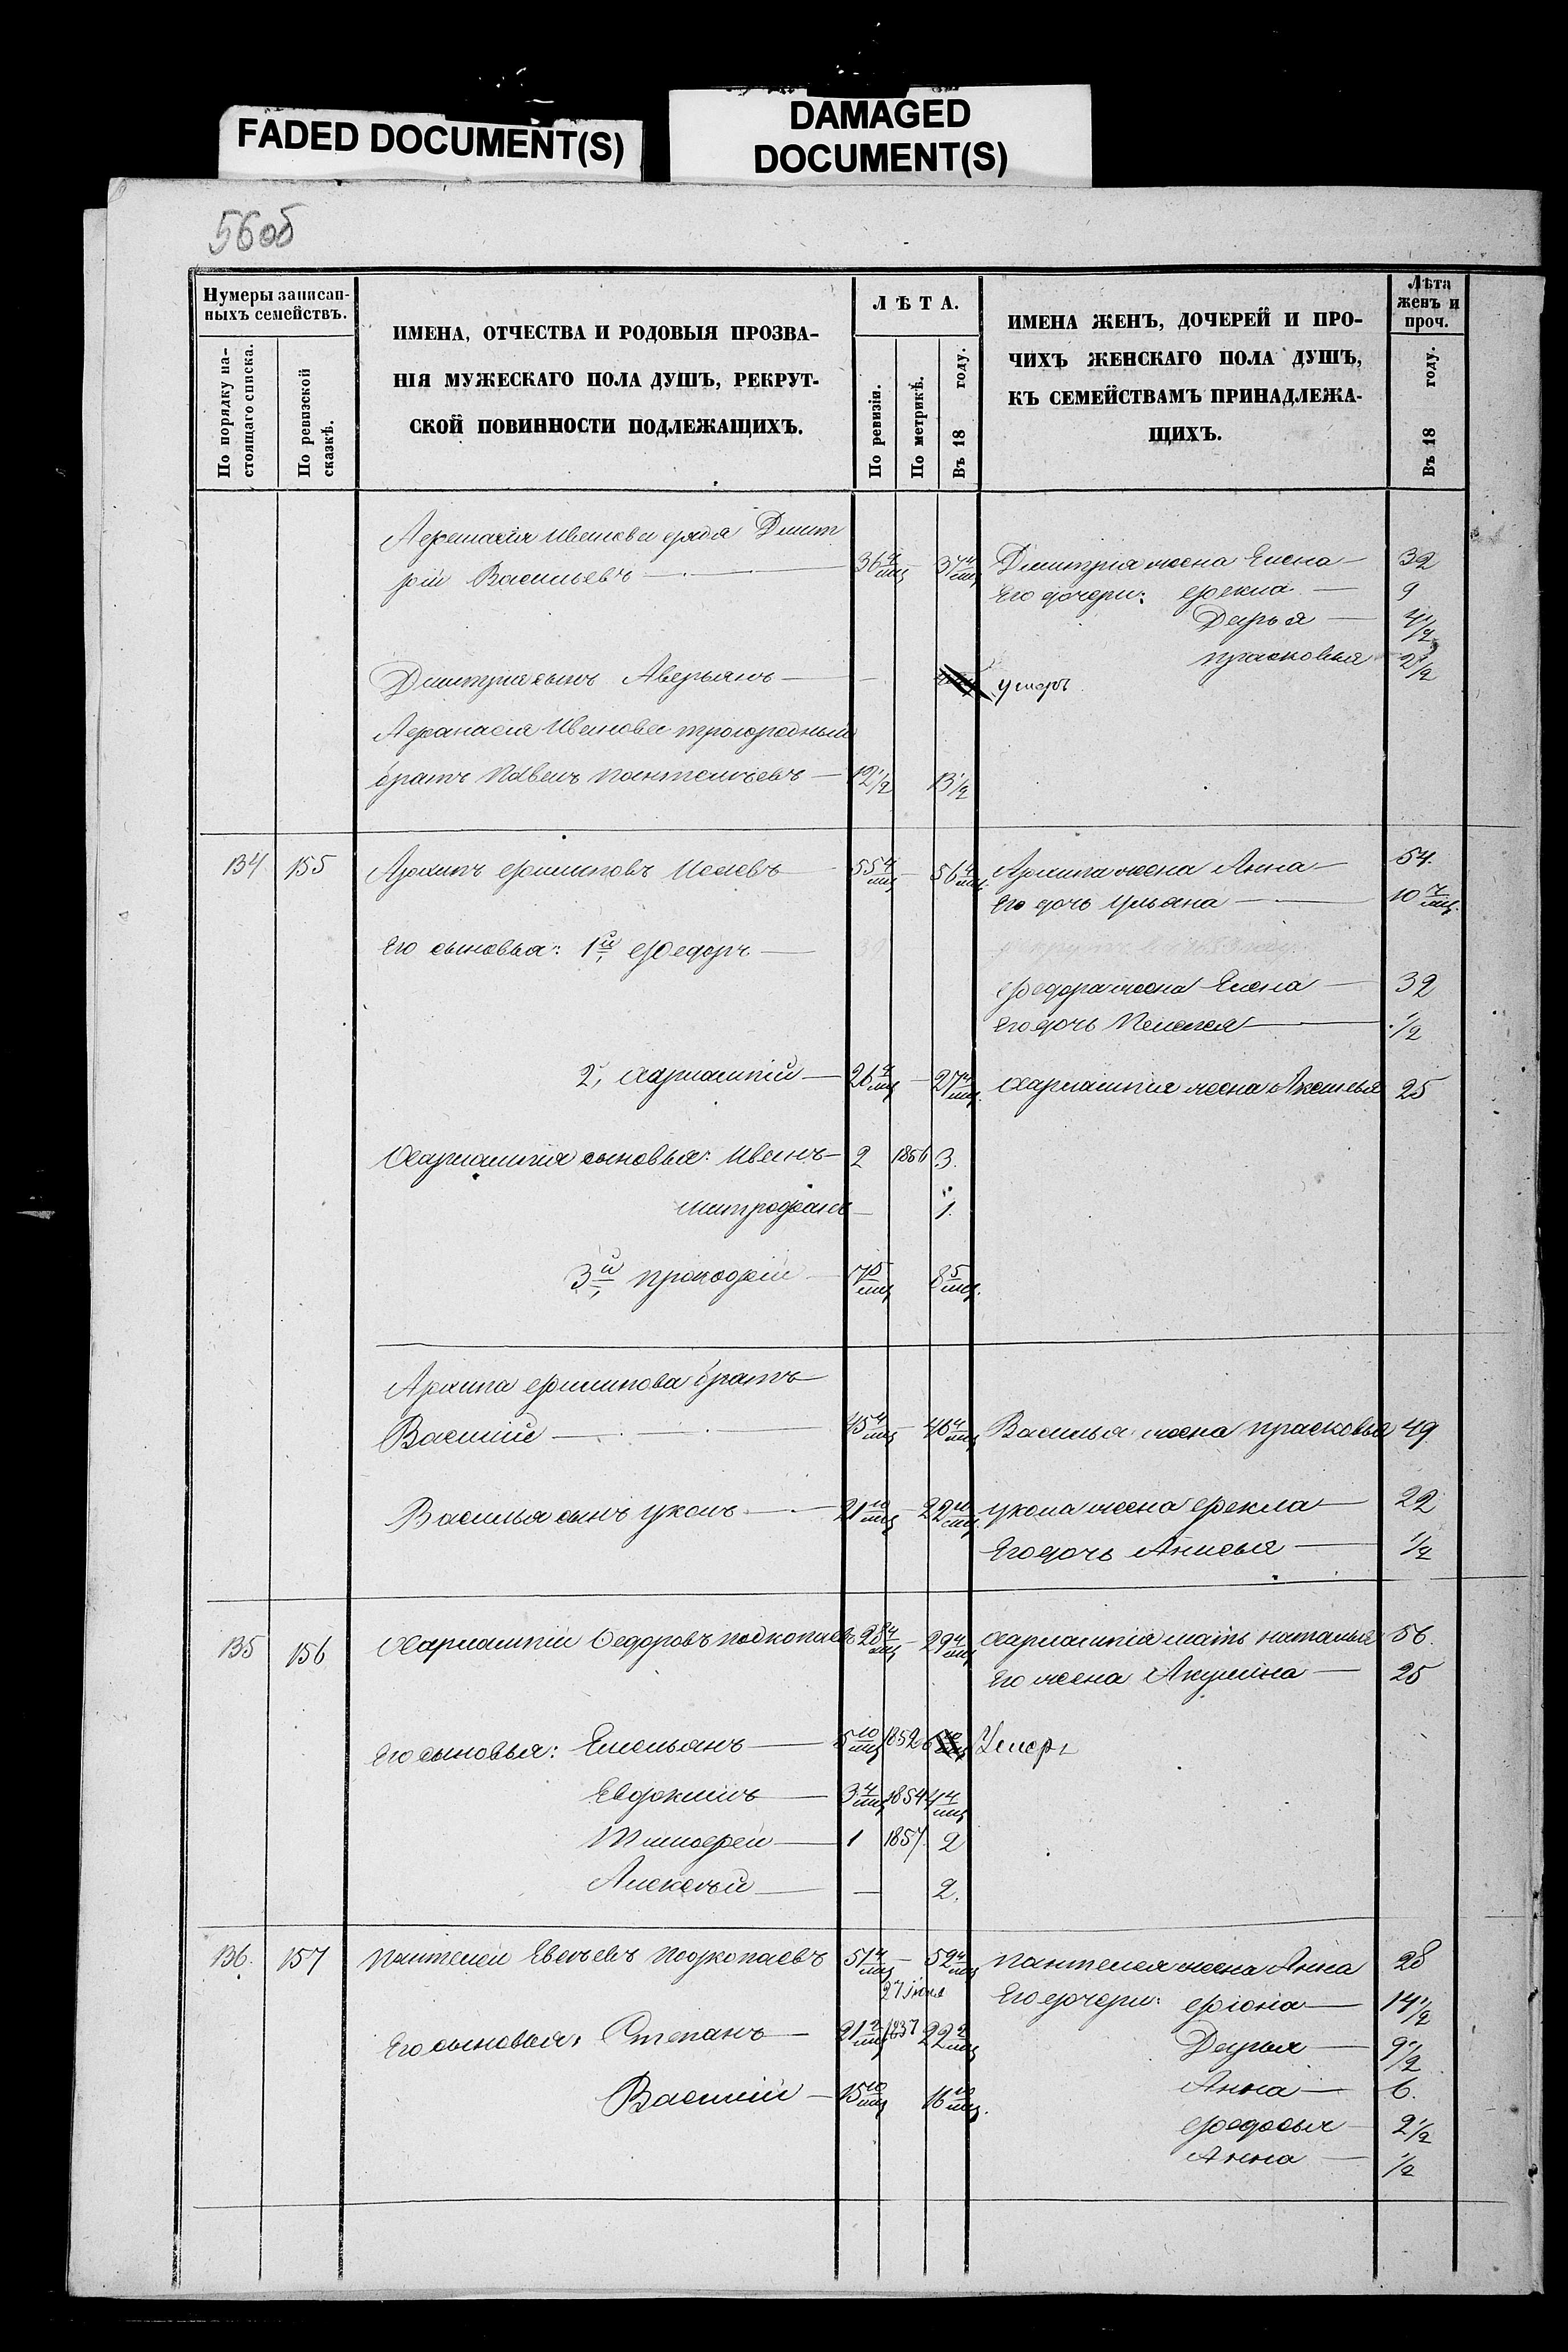 FADED DOCUMENT(S)
DAMAGED
DOCUMENT(S)
56об
Нумеры записан-
ныхъ семействъ.
По порядку на-
стоящаго списка.
По ревизской
сказкѣ.
ИМЕНА, ОТЧЕСТВА И РОДОВЫЯ ПРОЗВА-
НІЯ МУЖЕСКАГО ПОЛА ДУШЪ, РЕКРУТ-
СКОЙ ПОВИННОСТИ ПОДЛЕЖАЩИХЪ.
ЛѢТА.
По ревизіи.
По метрикѣ.
Въ 18 году.
ИМЕНА ЖЕНЪ, ДОЧЕРЕЙ И ПРО-
ЧИХЪ ЖЕНСКАГО ПОЛА ДУШЪ,
КЪ СЕМЕЙСТВАМЪ ПРИНАДЛЕЖА-
ЩИХЪ.
Лѣта
женъ и
проч.
Въ 18 году.
Афанасія Иванова дядя Дмит
рій Васильевъ — 36 4/мц — 37 4/мц Дмитрія жена Елена — 32
Его дочери: Фекла — 9
Дарья — 4 1/2
Прасковья 2 1/2
Дмитрія сынъ Аверьянъ — умеръ
Афанасія Иванова троюродный
братъ Павелъ Пантелѣевъ — 12 1/2 13 1/2
134 155 Архипъ Филиповъ — 55 4/мц — 56 4/мц Архипа жена Анна — 54.
Его дочь Ульяна — 10 7/мц.
Его сыновья: 1й, Федоръ —
Федора жена Елена — 32
Его дочь Пелагея — 1/2
2, Харлампій — 26 4/мц — 27 4/мц. Харлампія жена Аксинья 25
Харлампія сыновья: Иванъ — 2 1856 3.
Митрофанъ — 1.
3й, Прокофій — 7 5/мц 8 5/мц.
Архипа Филипова братъ
Василій — 45 4/мц — 46 4/мц Василья жена Прасковья 49.
Василья сынъ Уколъ — 21 10/мц — 22 10/мц. Укола жена Фекла — 22
Его дочь Анисья — 1/2
135 156 Харлампій Федоровъ Подкопаевъ 28 4/мц — 29 4/мц Харлампія мать Наталья 56.
Его жена Акулина — 25
Его сыновья: Емельянъ — 5 10/мц 1852 Умеръ
Евдокимъ — 3 4/мц 1854 4 4/мц
Тимофей — 1 1857. 2
Алексѣй — 2.
136. 157 Пантелей Евсѣевъ Подкопаевъ 51 4/мц — 52 4/мц Пантелея жена Анна 28
27 Іюля
Его дочери: Фіона — 14 1/2
Его сыновья, Степанъ — 21 4/мц 1837 22 4/мц Дарья — 9 1/2
Василій — 15 10/мц 16 10/мц. Анна — 6.
Федосья 2 1/2
Анна — 1/2